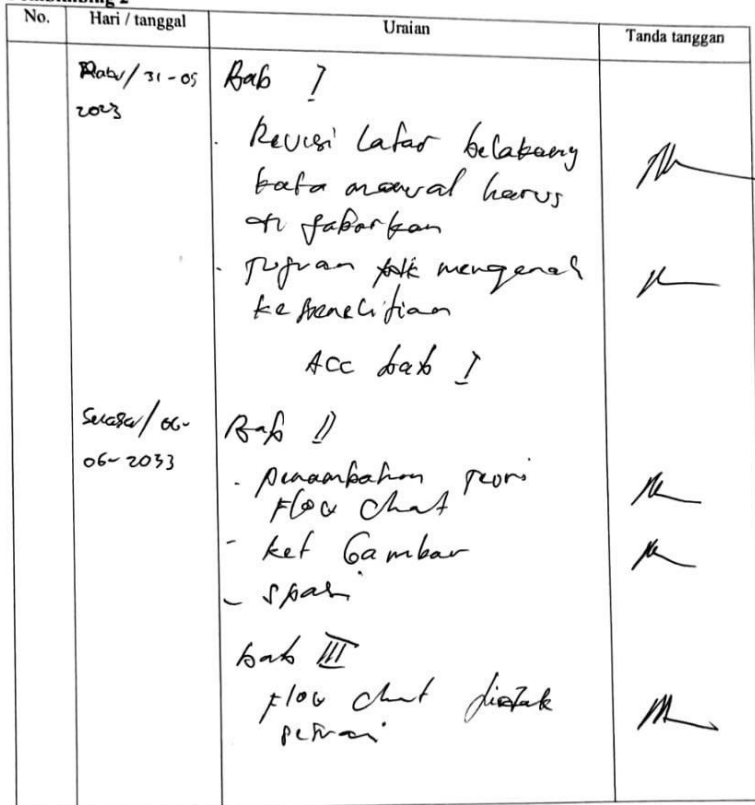 No. Hari / tanggal Uraian Tanda tanggan
Rabu/ 31-05 Bab I
2023
. Revisi Latar belakang
kata manual harus
di jabarkan
. Tujuan mengenai
ke penelitian
ACC bab I
Selasa/ 06- Bab II
06-2033
- penambahan Teori
Flow Chat
- ket Gambar
- spasi
bab III
Flow chat
sesuai